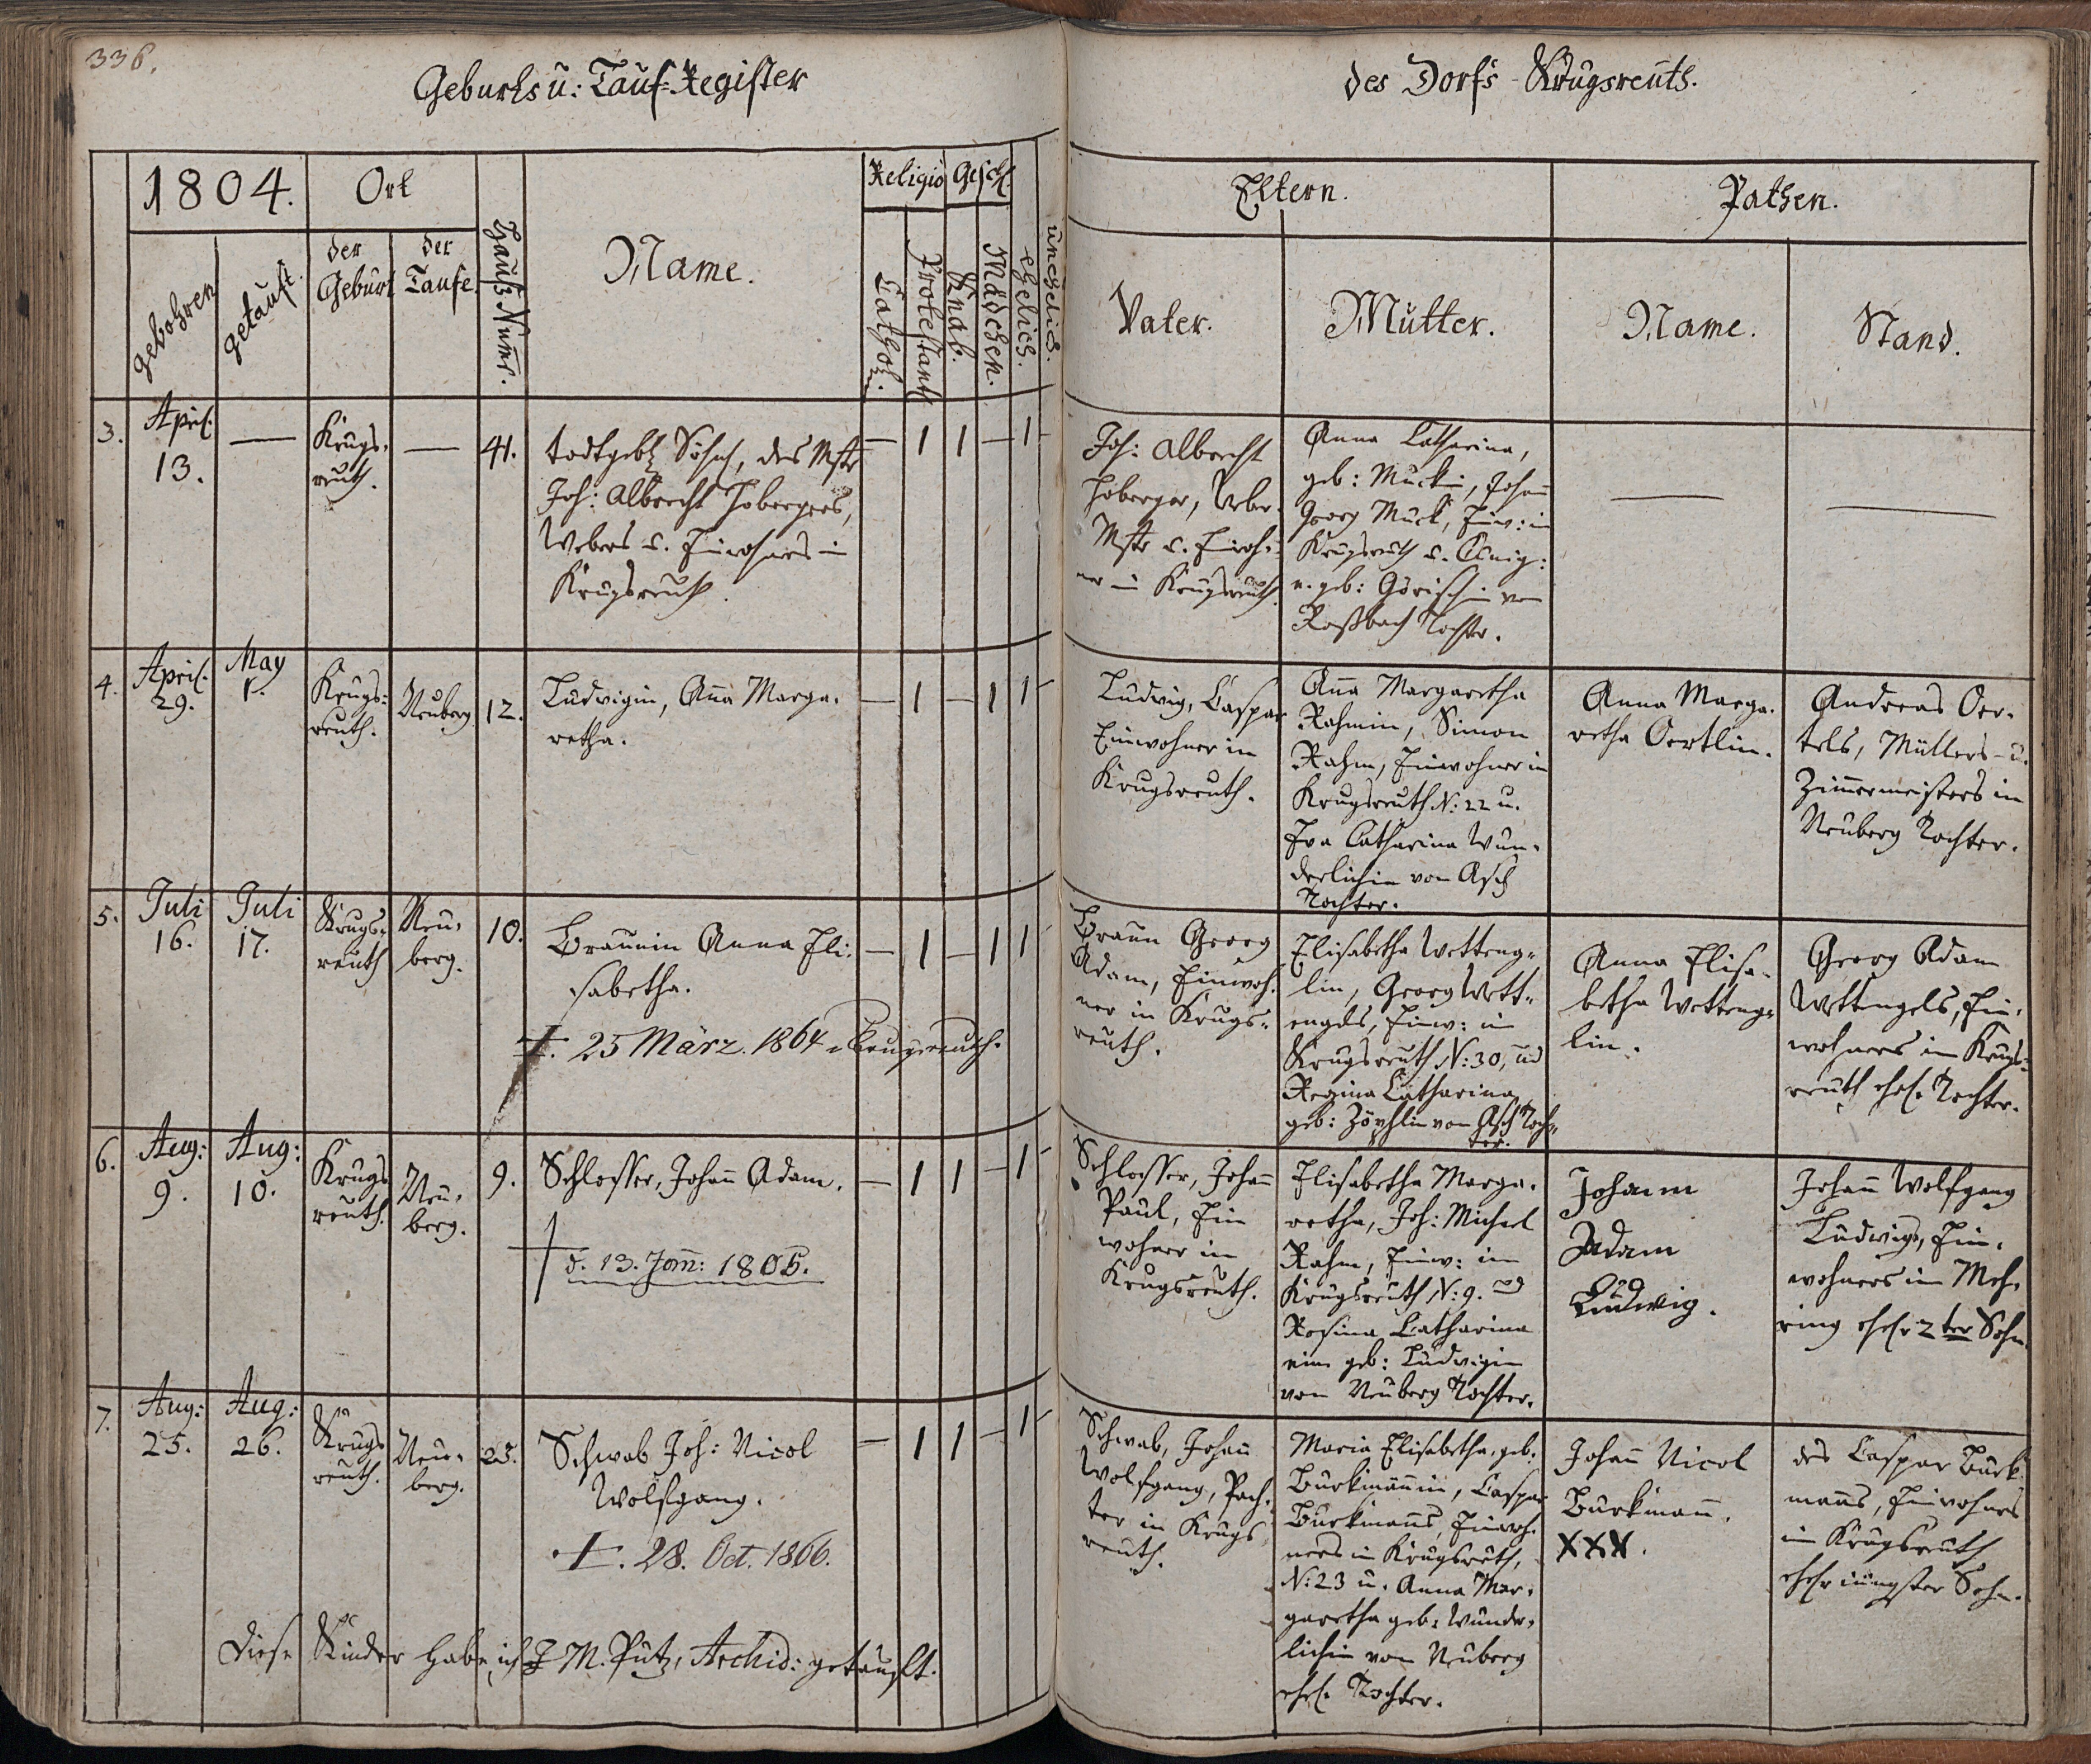 336.
Geburts u: Tauf-Register
des Dorfs Krugsreuth.
1804.
Ort
Religio
Gesch.
gebohren
getauft.
der Geburt
der Taufe
Hauß Num̅r.
Name.
Cathol.
Protestant
Knab.
Mädchen.
ehelich.
unehelich.
Eltern.
Pathen.
Vater.
Mutter.
Name.
Stand.
3.
April.
13.
—
Krugs-
reuth.
—
41.
todtgeb. Sohn, des Mstr
Joh: Albrecht Hobergers,
Webers u. Einwohners in
Krugsreuth.
— 1 1 — 1 -
Joh: Albrecht
Hoberger, Weber-
Mstr u. Einwoh-
ner in Krugsreuth.
Anna Catharina,
geb: Muckin, Johan̅
Georg Muck, Einw: in
Krugsreuth u.
geb: von
Roßbach Tochter.
—
—
4.
April.
29.
May
1.
Krugs-
reuth.
Neuberg
12.
Ludwigin, An̅a Marga-
retha.
— 1 — 1 1 -
Ludwig, Caspar
Einwohner in
Krugsreuth.
An̅a Margaretha
Rahmin, Simon
Rahm, Einwohner in
Krugsreuth N: 22 u.
Eva Catharina Wun-
derlichin von Asch
Tochter.
Anna Marga-
retha Oertlin.
Andreas Oer-
tels, Müllers- u.
Zim̅ermeisters in
Neuberg Tochter.
5.
Juli
16.
Juli
17.
Krugs-
reuth
Neu-
berg.
10.
Braunin Anna Eli-
sabetha.
†. 25 März. 1864 Krugsreuth.
— 1 — 1 1 -
Braun Georg
Adam, Einwoh-
ner in Krugs-
reuth.
Elisabetha Wetteng-
lin, Georg Wett-
engels, Einw: in
Krugsreuth N: 30, und
Regina Catharina
geb: Zöphlin von Asch Toch-
ter.
Anna Elisa-
betha Wetteng-
lin.
Georg Adam
Wettengels, Ein-
wohners in Krugs-
reuth ehel. Tochter.
6.
Aug:
9.
Aug:
10.
Krugs
reuth.
Neu-
berg.
9.
Schlosser, Johan̅ Adam.
† d. 13. Jan̅: 1805.
— 1 1 — 1 -
Schlosser, Johan̅
Paul, Ein
wohner in
Krugsreuth.
Elisabetha Marga-
retha, Joh: Michael
Rahm, Einw: in
Krugsreuth N: 9. und
Rosina Catharina
eine geb: Ludwigin
von Neuberg Tochter.
Johann
Adam
Ludwig.
Johan̅ Wolfgang
Ludwigs, Ein-
wohners in Meh-
ring ehel. 2ter Sohn
7.
Aug:
25.
Aug:
26.
Krugs
reuth.
Neu-
berg.
23.
Schwab Joh: Nicol
Wolfgang.
†. 28. Oct. 1866.
— 1 1 — 1 -
Schwab, Johan̅
Wolfgang, Pach-
ter in Krugs
reuth.
Maria Elisabetha, geb:
Burkman̅in, Caspar
Burkman̅s, Einwoh-
ners in Krugsreuth,
N: 23 u. Anna Mar-
garetha geb: Wunder-
lichin von Neuberg
ehel. Tochter.
Johan̅ Nicol
Burkman̅.
XXX.
des Caspar Burk-
man̅s, Einwohners
in Krugsreuth
ehel. jüngster Sohn.
Diese Kinder habe ich J M. Putz, Archid: getauft.